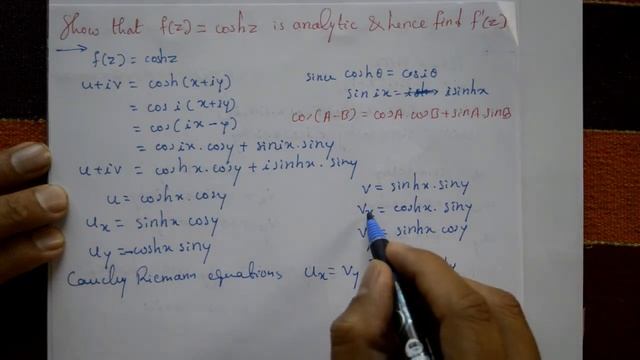 Show that f(z) = coshz is analytic & hence find f'(z)
→ f(z) = coshz
u+iv = cosh(x+iy)
= cos i(x+iy)
= cos(ix-y)
= cosix.cosy + sinix.siny
u+iv = coshx.cosy + isinhx.siny
since coshθ = cosiθ
sin ix = isinhx
cos(A-B) = cosA.cosB + sinA.sinB
u = coshx.cosy
ux = sinhx cosy
uy = -coshx siny
v = sinhx.siny
vx = coshx.siny
= sinhx cosy
Cauchy Riemann equations ux = vy